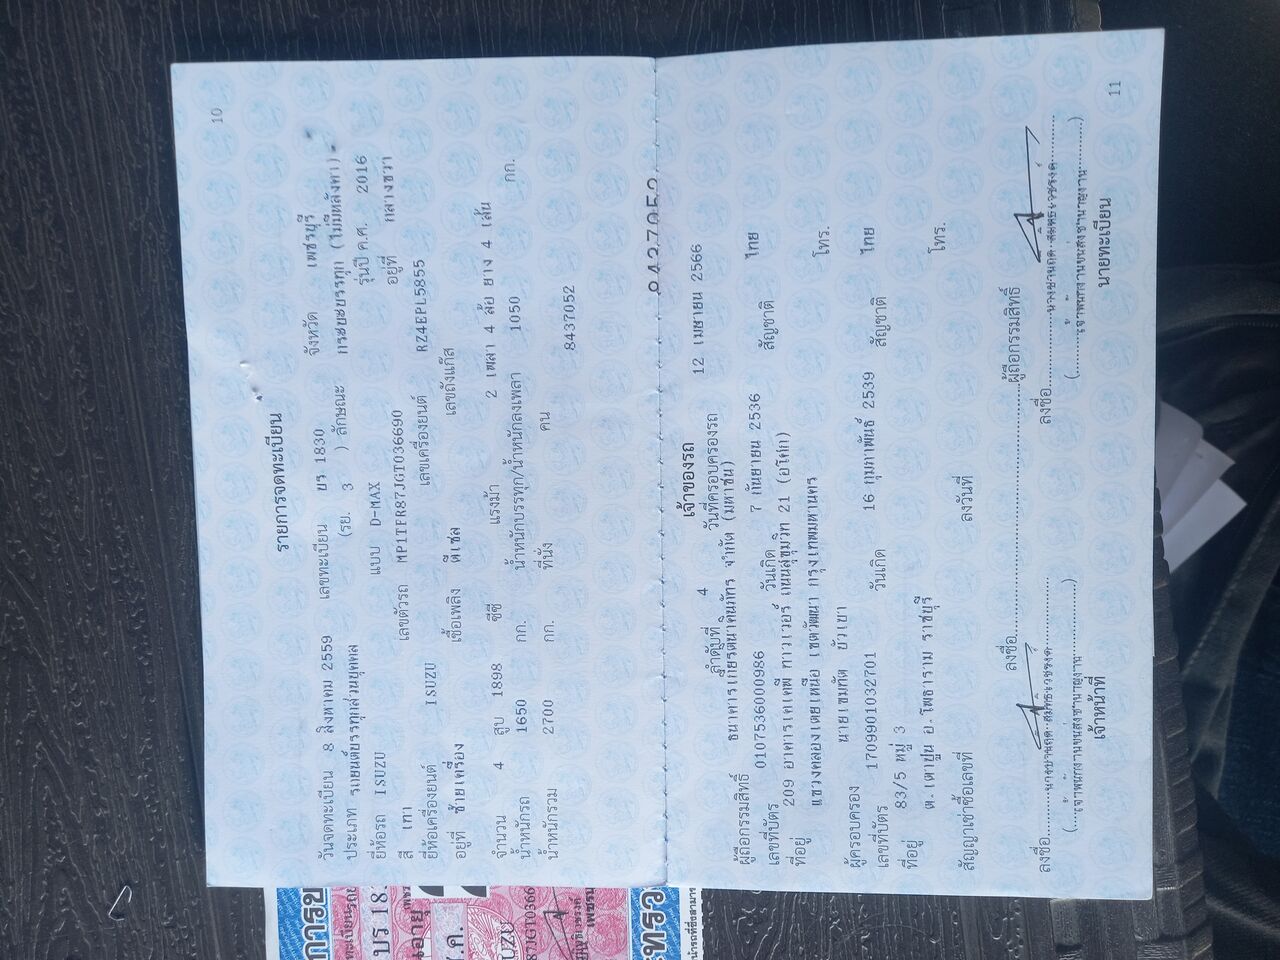 10
รายการจดทะเบียน
วันจดทะเบียน 8 สิงหาคม 2559 เลขทะเบียน บร 1830 จังหวัด เพชรบุรี
ประเภท รถยนต์บรรทุกส่วนบุคคล (รย. 3 ) ลักษณะ กระบะบรรทุก (ไม่มีหลังคา)
ยี่ห้อรถ ISUZU แบบ D-MAX รุ่นปี ค.ศ. 2016
สี เทา เลขตัวรถ MP1TFR87JGT036690 อยู่ที่ กลางขวา
ยี่ห้อเครื่องยนต์ ISUZU เลขเครื่องยนต์ RZ4EPL5855
อยู่ที่ ซ้ายเครื่อง เชื้อเพลิง ดีเซล เลขถังแก๊ส
จำนวน 4 สูบ 1898 ซีซี แรงม้า 2 เพลา 4 ล้อ ยาง 4 เส้น
น้ำหนักรถ 1650 กก. น้ำหนักบรรทุก/น้ำหนักลงเพลา 1050 กก.
น้ำหนักรวม 2700 กก. ที่นั่ง คน
8437052
เจ้าของรถ
ลำดับที่ 4 วันที่ครอบครองรถ 12 เมษายน 2566
ผู้ถือกรรมสิทธิ์ ธนาคารเกียรตินาคินภัทร จำกัด (มหาชน)
เลขที่บัตร 0107536000986 วันเกิด 7 กันยายน 2536 สัญชาติ ไทย
ที่อยู่ 209 อาคารเคเคพี ทาวเวอร์ ถนนสุขุมวิท 21 (อโศก)
แขวงคลองเตยเหนือ เขตวัฒนา กรุงเทพมหานคร โทร.
ผู้ครอบครอง นายเขมทัต บัวเขา
เลขที่บัตร 1709901032701 วันเกิด 16 กุมภาพันธ์ 2539 สัญชาติ ไทย
ที่อยู่ 83/5 หมู่ 3
ต.เตาปูน อ.โพธาราม ราชบุรี โทร.
สัญญาเช่าซื้อเลขที่ ลงวันที่
ลงชื่อ ผู้ถือกรรมสิทธิ์
ลงชื่อ ลงชื่อ
(เจ้าพนักงานขนส่งชำนาญงาน) (เจ้าพนักงานขนส่งชำนาญงาน)
เจ้าหน้าที่ นายทะเบียน
11
การข
บร 18
ISUZU
ทรวง